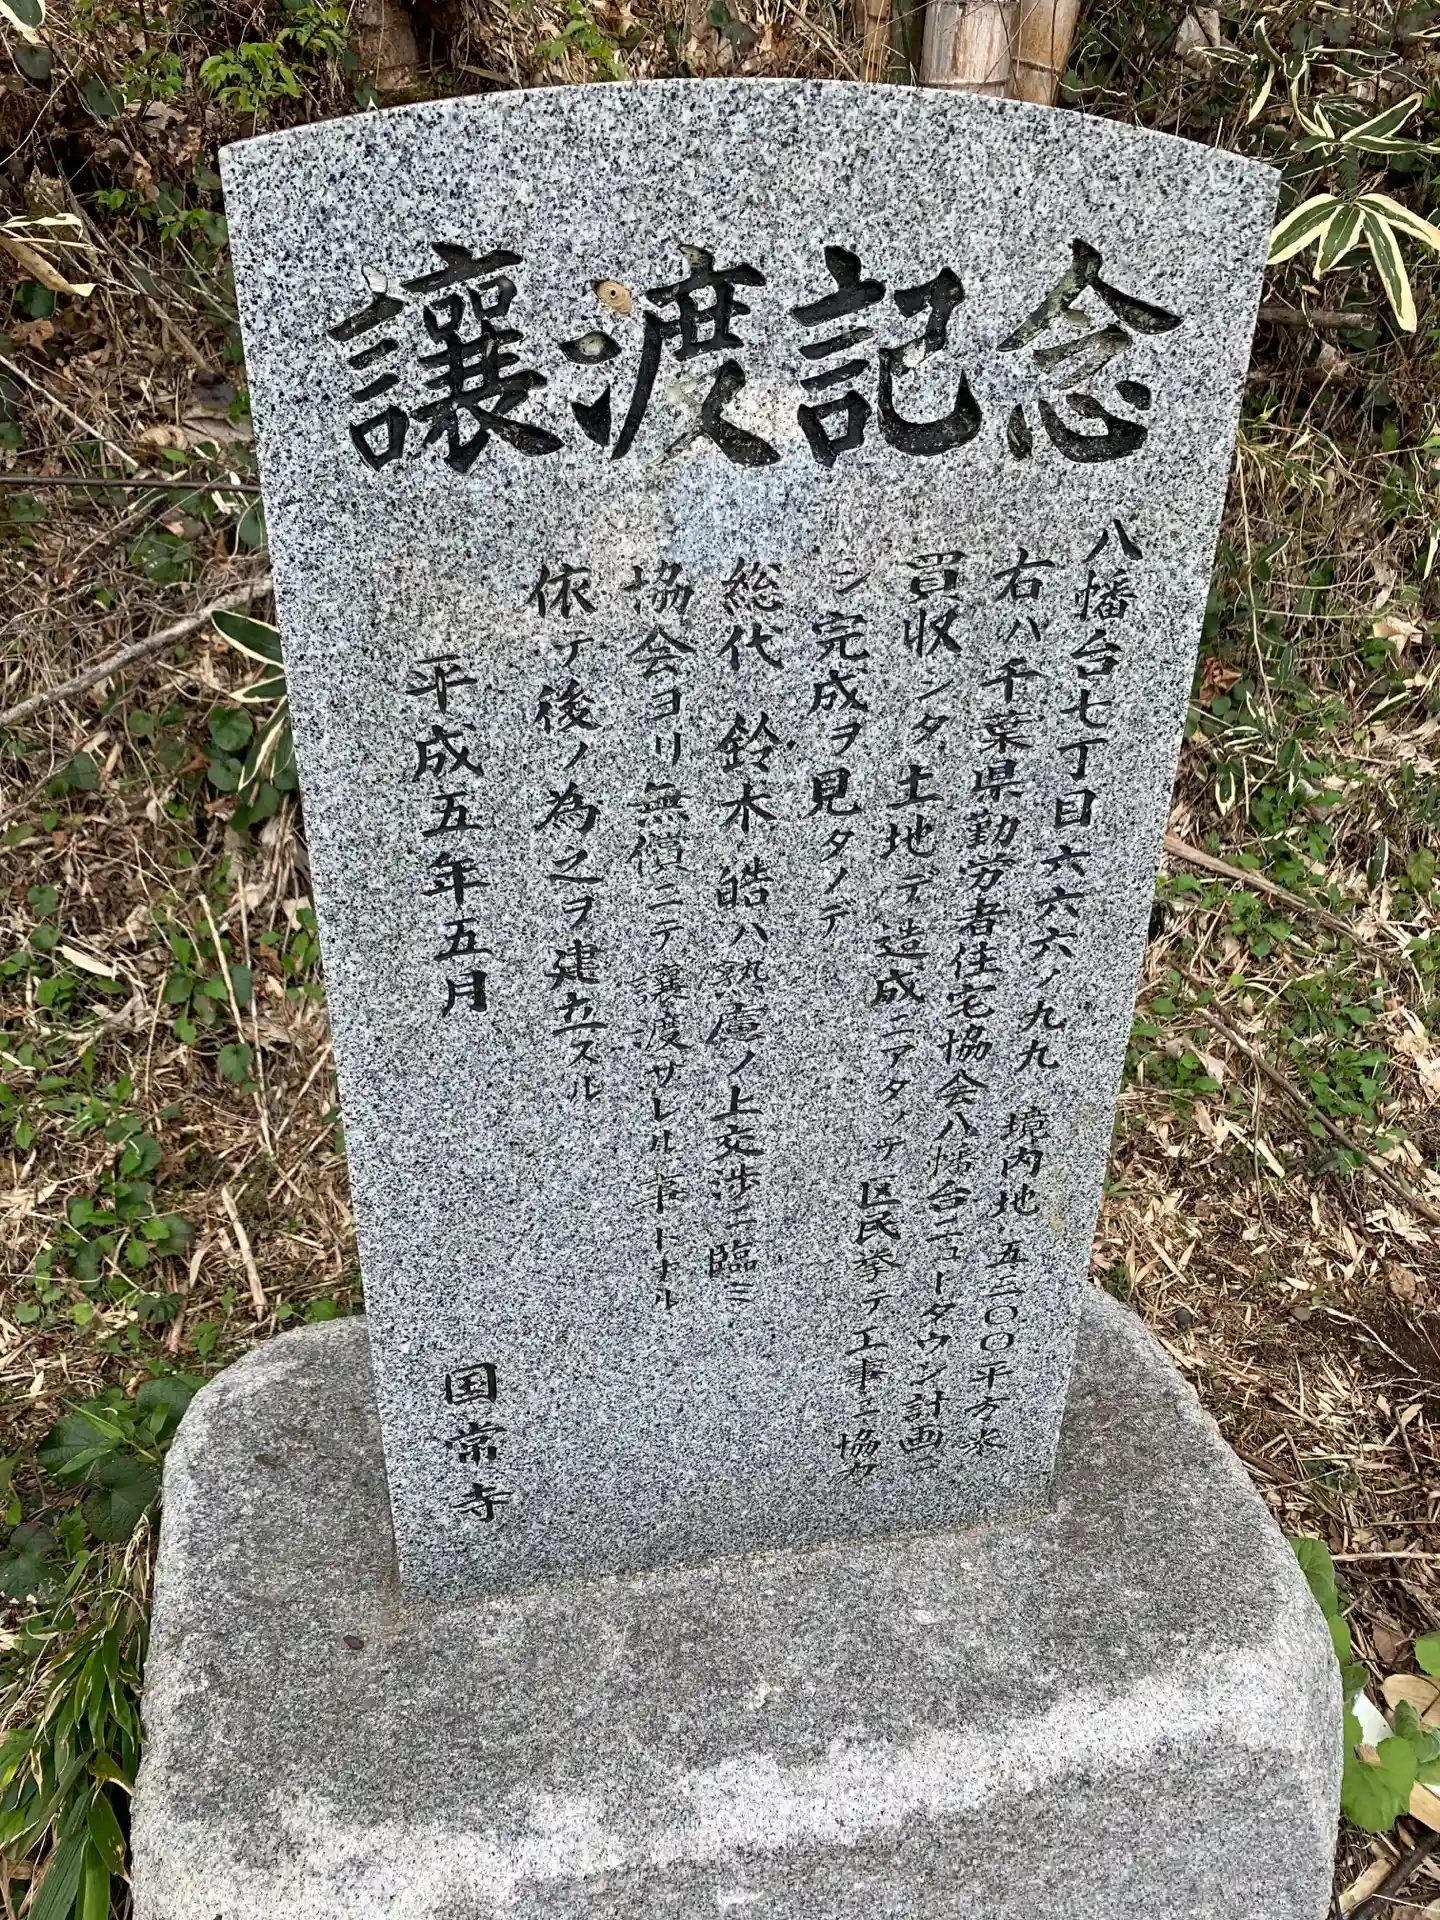 讓渡記念
八幡台七丁目六六六ノ九九 境内地 五二〇〇平方米
右ハ千葉県勤労者住宅協会八幡台ニュータウン計画ニ
買収シタ土地デ造成ニアタッテ区民挙テ工事ニ協力
シ完成ヲ見タノデ
総代 鈴木 皓ハ熟慮ノ上交渉ニ臨ミ
協会ヨリ無償ニテ讓度サレル事トナル
依テ後ノ為之ヲ建立スル
平成五年五月 国常寺